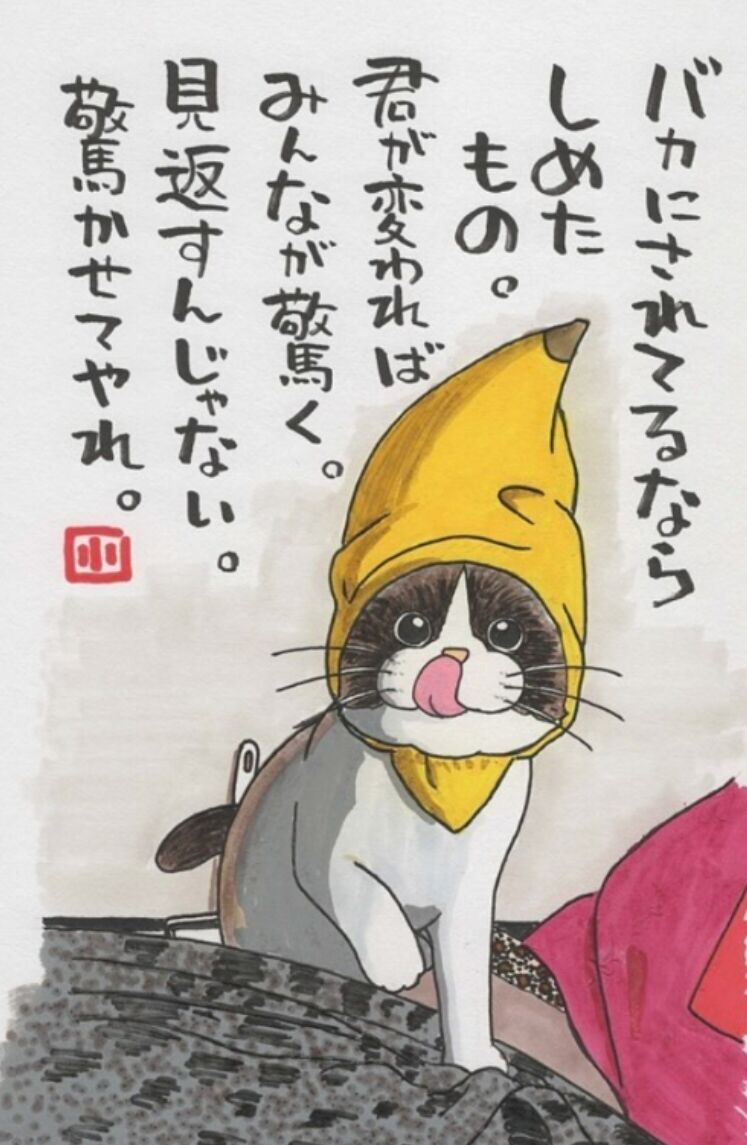 バカにされてるなら
しめた
もの。
君が変われば
みんなが驚く。
見返すんじゃない。
驚かせてやれ。